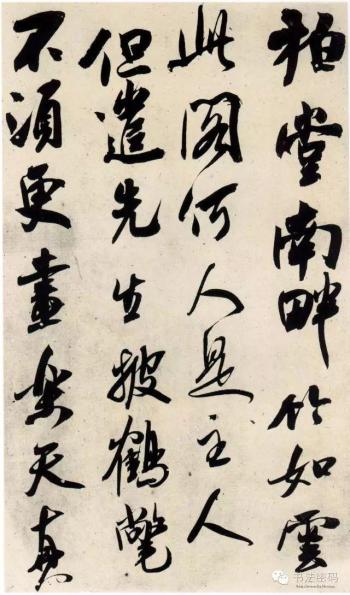 柏堂南畔竹如雲
此閣何人是主人
但遣先生披鶴氅
不須更畫樂天真
书法密码